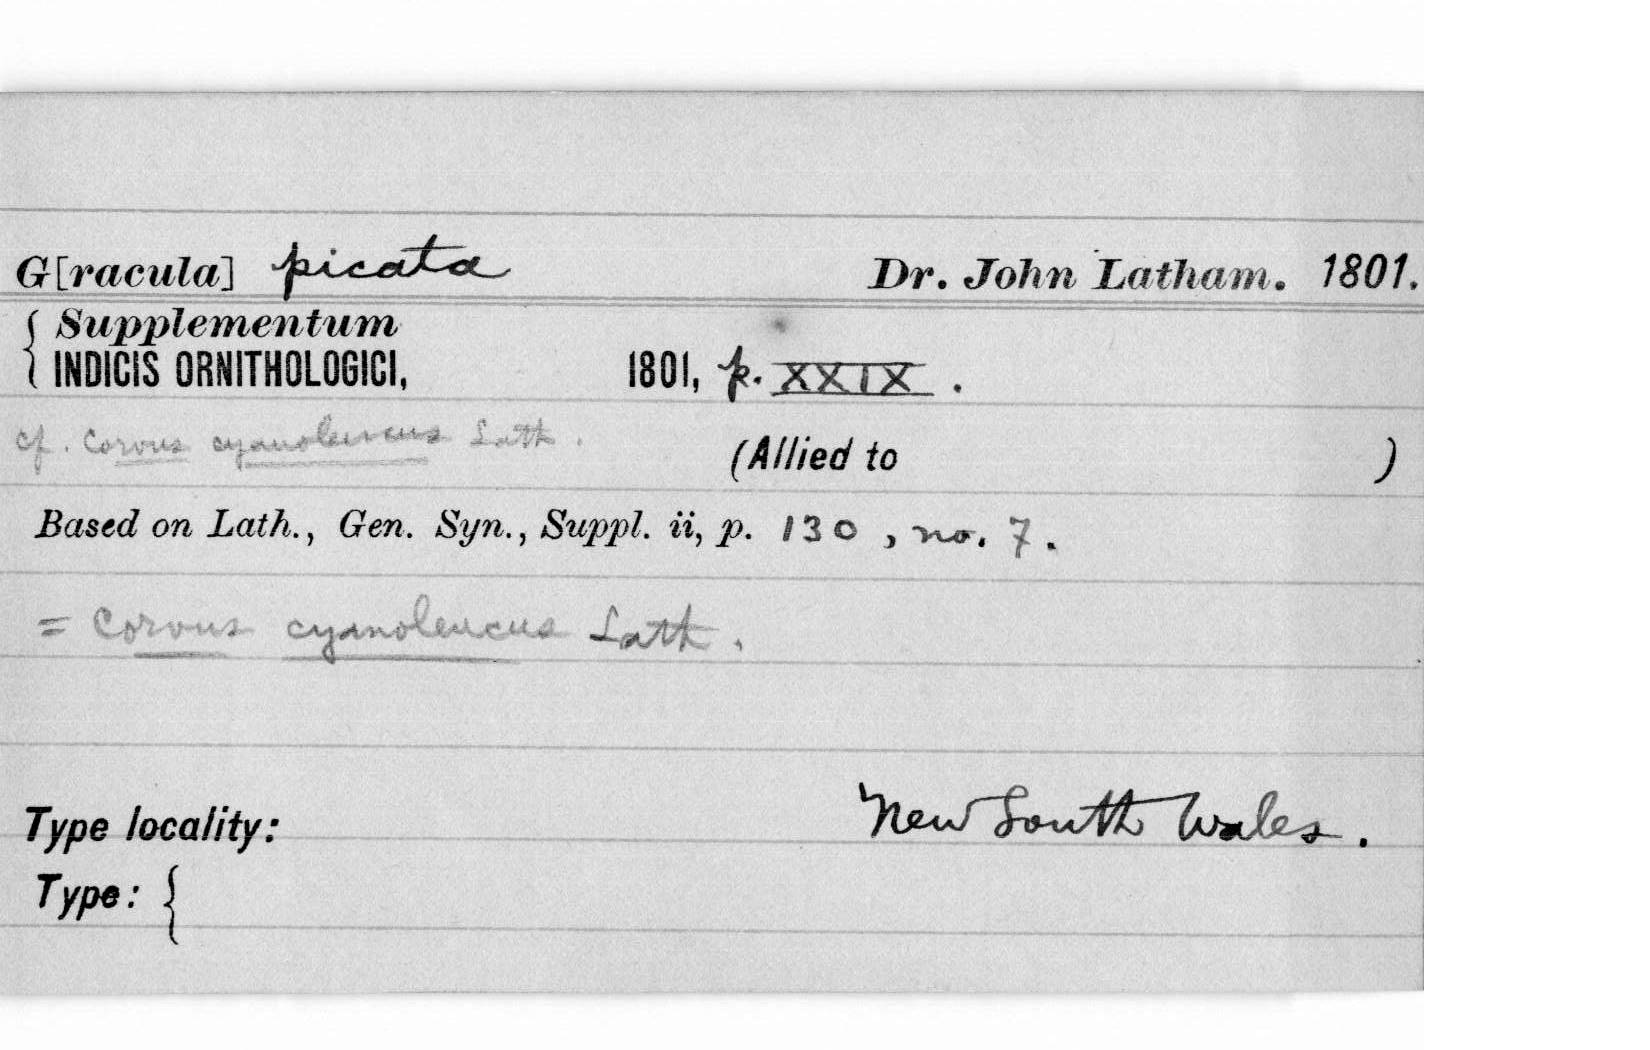 G[racula] picata Dr. John Latham. 1801.
{ Supplementum
INDICIS ORNITHOLOGICI, 1801, p. XXIX .
cf. Corvus cyanoleucus Lath. (Allied to )
Based on Lath., Gen. Syn., Suppl. ii, p. 130 , no. 7 .
= Corvus cyanoleucus Lath .
Type locality: New South Wales .
Type: {